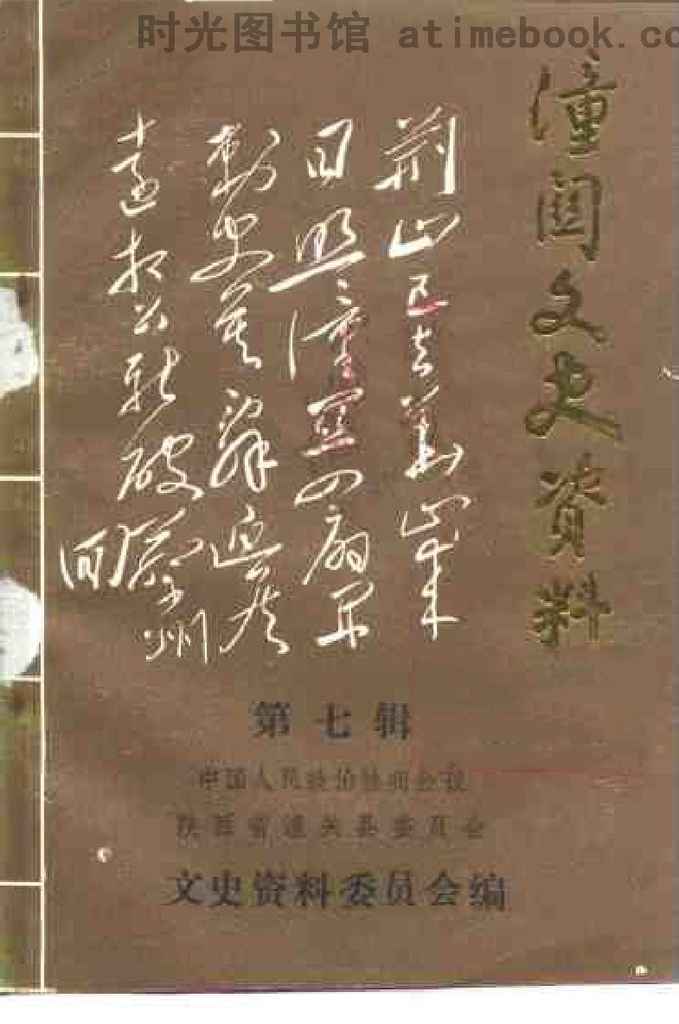 时光图书馆 atimebook.co
潼関文史资料
荆山已去華山來
日照潼関四扇开
刺史莫辞迎候
遠相公新破蔡州
回
第七辑
中国人民政治协商会议
陕西省潼关县委员会
文史资料委员会编